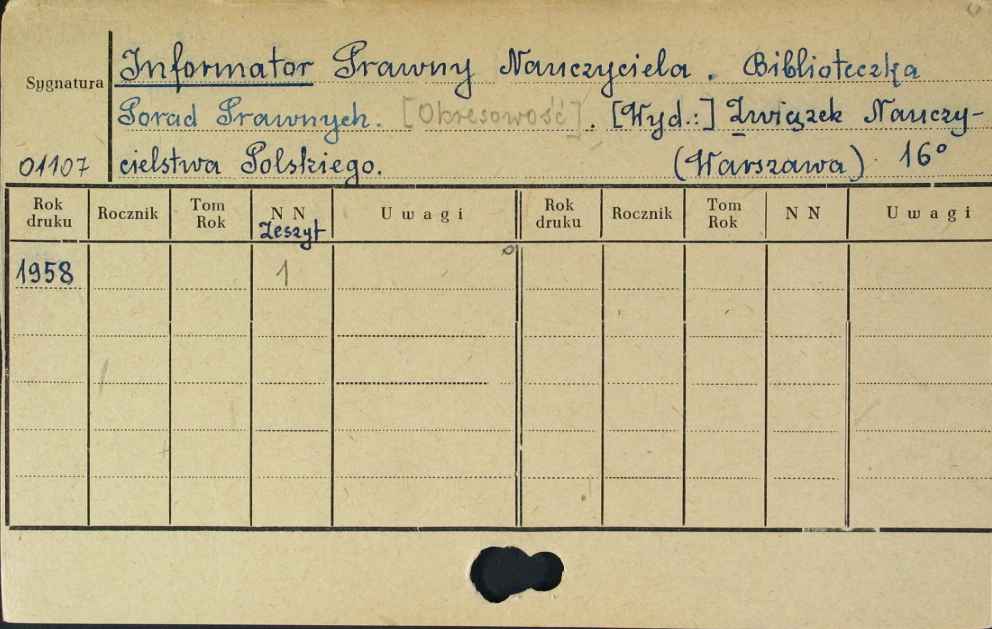 Informator Prawny Nauczyciela. Biblioteczka
Sygnatura
Porad Prawnych. [Okresowość]. [Wyd.:] Związek Nauczy-
01107 cielstwa Polskiego. (Warszawa) 16°
Rok druku Rocznik Tom Rok N N Zeszyt Uwagi Rok druku Rocznik Tom Rok N N Uwagi
1958 1